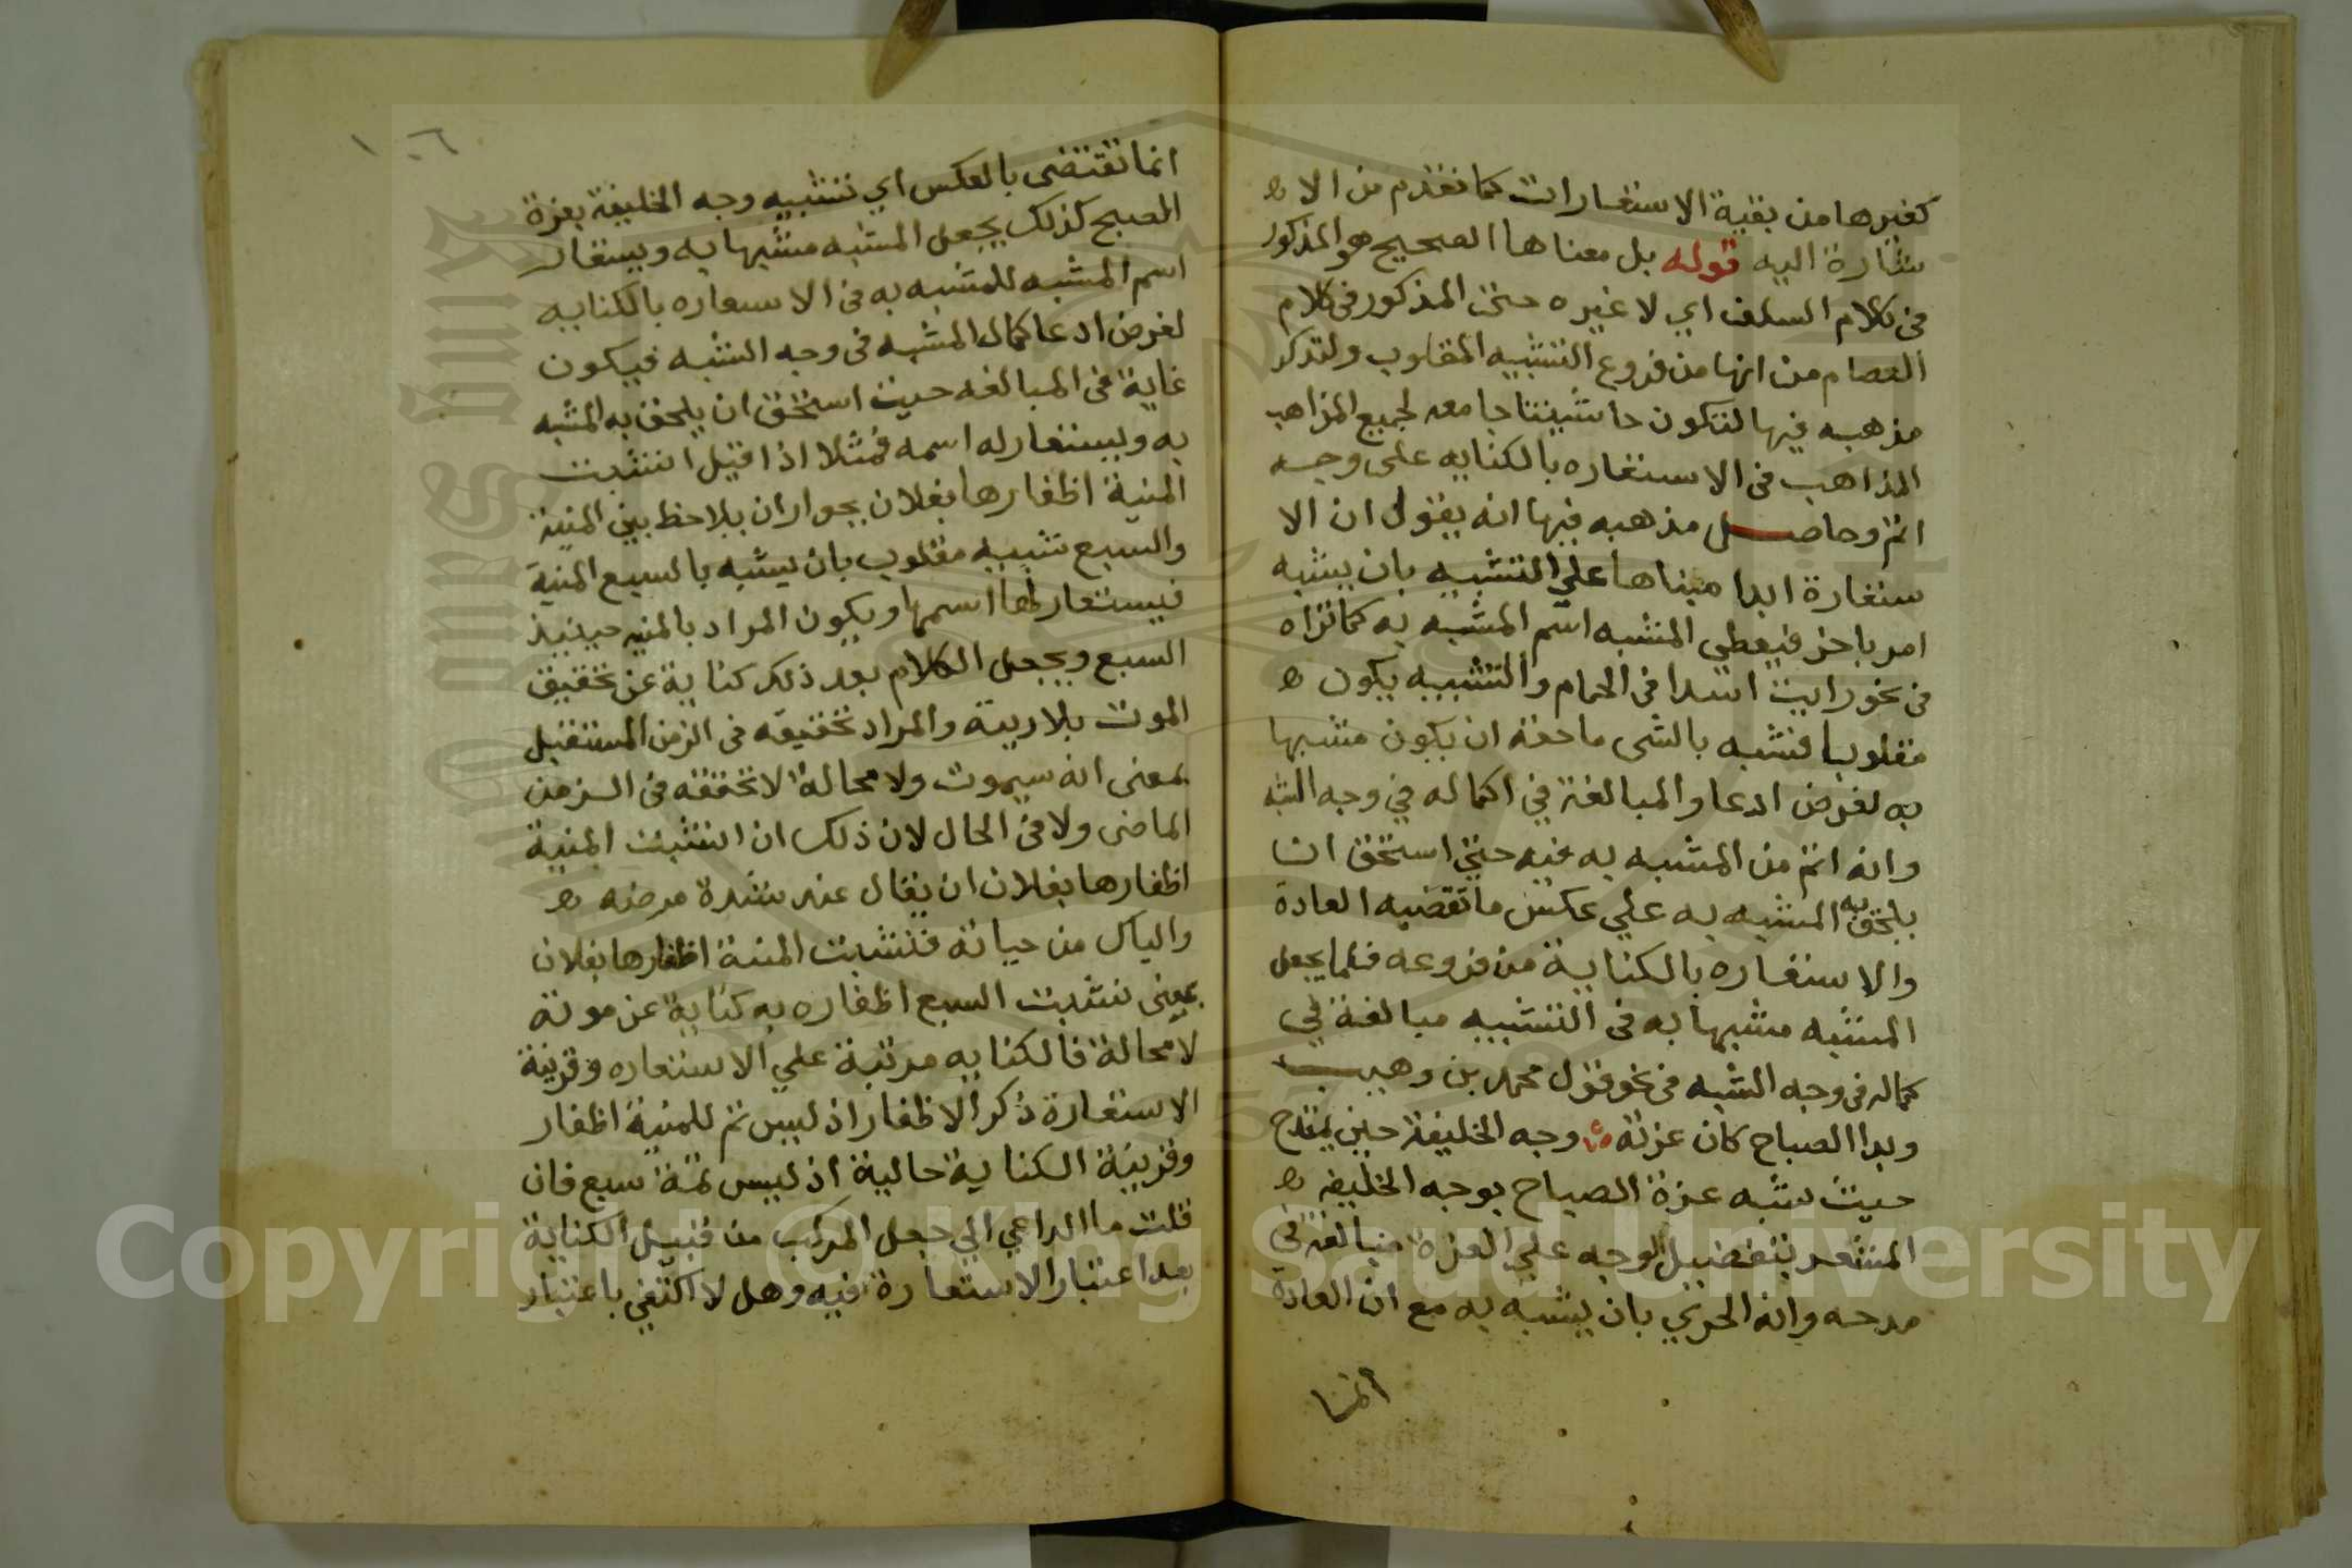 كغيرها من بقية الاستعارات كما تقدم من الا ه
شارة اليه قوله بل معناها الصحيح هو المذكور
فى كلام السلف اي لا غيره حتى المذكور فى كلام
العصام من انها من فروع التشبيه المقلوب ولنذكر
مذهبه فيها لتكون حاشيتنا جامعه لجميع المذاهب
المذاهب فى الاستعاره بالكنايه على وجه
اتم وحاصل مذهبه فيها انه يقول ان الا
ستعارة ابدا مبناها علي التشبيه بان يشبه
امر باخر فيعطي المشبه اسم المشبه به كما تراه
فى نحو رايت اسدا فى الحمام والتشبيه يكون ه
مقلوبا فتشبه بالشى ما حقه ان يكون مشبها
به لغرض ادعا والمبالغة في اكماله في وجه الشبه
وانه اتم من المشبه به فيه حتى استحق ان
يلحق به المشبه به علي عكس ما تقضيه العادة
والاستعاره بالكناية من فروعه فلما يجعل
المشبه مشبها به فى التشبيه مبالغة في
كماله فى وجه الشبه فى نحو قول محمد بن وهيب
وبدا الصباح كان غرته وجه الخليفة حين يمتدح
حيث شبه غرة الصباح بوجه الخليفه ه
المشعر بتفضيل الوجه علي الغرة مبالغة فى
مدحه وانه الحري بان يشبه به مع ان العادة
انما
١٠٦
انما تقتضى بالعكس اي تشبيه وجه الخليفة بغرة
الصبح كذلك يجعل المشبه مشبها به ويستعار
اسم المشبه للمشبه به فى الاستعاره بالكنايه
لغرض ادعا كمال المشبه فى وجه الشبه فيكون
غاية فى المبالغه حيث استحق ان يلحق به المشبه
به ويستعار له اسمه فمثلا اذا قيل انشبت
المنية اظفارها بفلان بجوار ان يلاحظ بين المنية
والسبع تشبيه مقلوب بان يشبه بالسبع المنية
فيستعار لها اسمها ويكون المراد بالمنيه حينيذ
السبع ويجعل الكلام بعد ذلك كناية عن تحقيق
الموت بلا ريبة والمراد تحقيقه فى الزمن المستقبل
بمعنى انه سيموت ولا محالة لا تحققه فى الزمن
الماضى ولا فى الحال لان ذلك ان انشبت المنية
اظفارها بفلان ان يقال عند شدة مرضه ه
والياس من حياته فنشبت المنية اظفارها بفلان
بمعنى نشبت السبع اظفاره به كناية عن موته
لا محالة فالكنايه مرتبة علي الاستعاره وقرينة
الاستعارة ذكر الاظفار اذ ليس ثم للمنية اظفار
وقرينة الكناية حالية اذ ليس ثمة سبع فان
قلت ما الداعي الي جعل المركب من قبيل الكناية
بعد اعتبار الاستعارة فيه وهل لا اكتفي باعتبار
Copyright © King Saud University